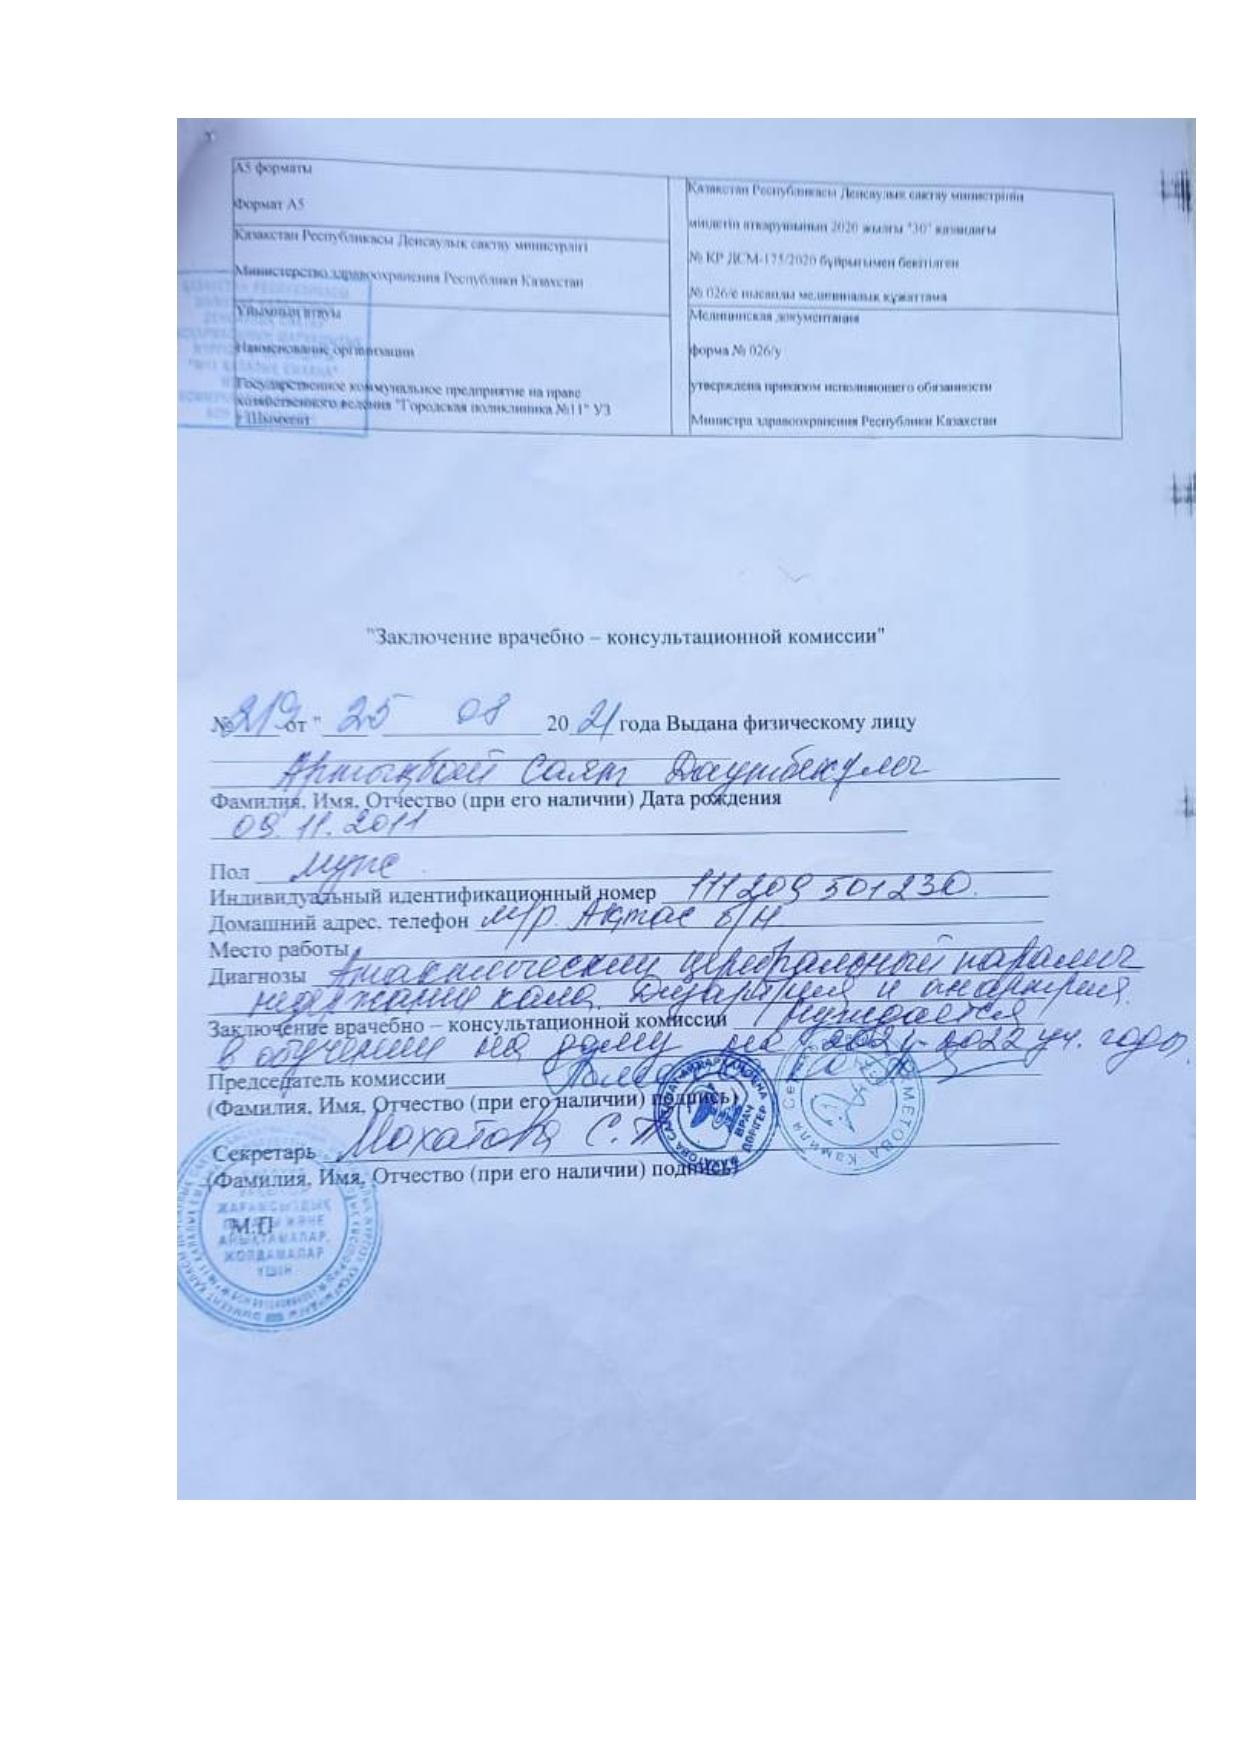 А5 форматы
Формат А5
Казақстан Республикасы Денсаулық сақтау министрлігі
Министерство здравоохранения Республики Казахстан
Ұйымның атауы
Наименование организации
Государственное коммунальное предприятие на праве
хозяйственного ведения "Городская поликлиника №11" УЗ
г Шымкент
Казақстан Республикасы Денсаулық сақтау министрінің
міндетін атқарушының 2020 жылғы "30" қазандағы
№ ҚР ДСМ-175/2020 бұйрығымен бекітілген
№ 026/е нысанды медициналық құжаттама
Медицинская документация
форма № 026/у
утверждена приказом исполняющего обязанности
Министра здравоохранения Республики Казахстан
"Заключение врачебно – консультационной комиссии"
№ 219 от " 25 08 2021 года Выдана физическому лицу
Артықбай Саят Даутбекұлы
Фамилия, Имя, Отчество (при его наличии) Дата рождения
09.11.2011
Пол муж
Индивидуальный идентификационный номер 111209501230.
Домашний адрес, телефон м/р. Ақтас б/н
Место работы
Диагнозы церебральный паралич
недержание кала. Дизартрия и анартрия.
Заключение врачебно – консультационной комиссии нуждается
в обучении на дому на 2021-2022 уч. годы.
Председатель комиссии
(Фамилия, Имя, Отчество (при его наличии) подпись)
Секретарь Махатова С.
(Фамилия, Имя, Отчество (при его наличии) подпись)
М.П
ВРАЧ
ДӘРІГЕР
ЖАРАМСЫЗДЫҚ
АНЫҚТАМАЛАР,
ЖОЛДАМАЛАР
ҮШІН